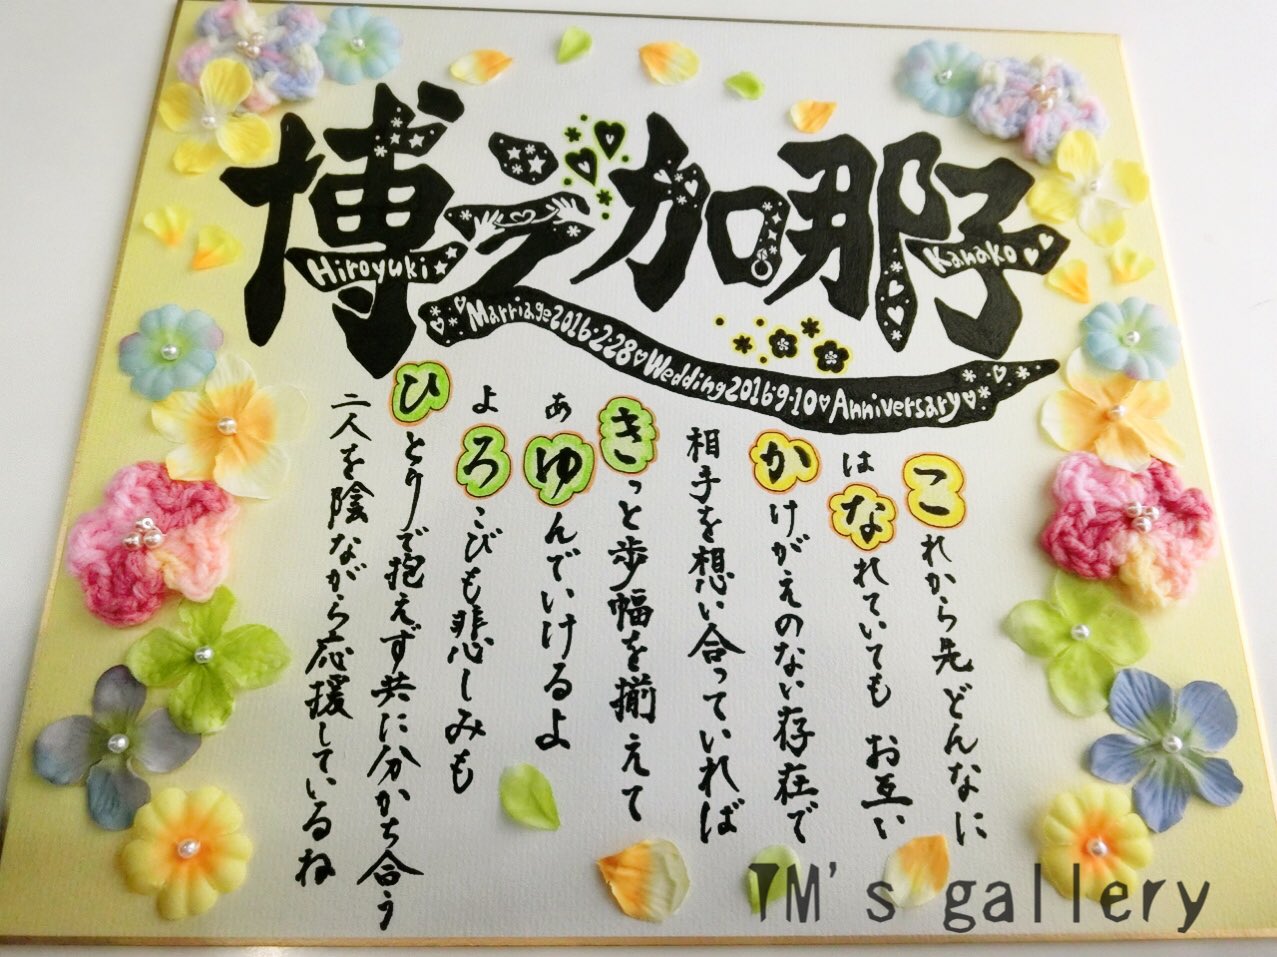 博之 加那子
Hiroyuki
Kanako
Marriage2016・2・28♡Wedding2016・9・10♡Anniversary♡
これから先どんなに
はなれていても お互い
かけがえのない存在で
相手を想い合っていれば
きっと歩幅を揃えて
あゆんでいけるよ
よろこびも悲しみも
ひとりで抱えず共に分かち合う
二人を陰ながら応援しているね
TM's gallery